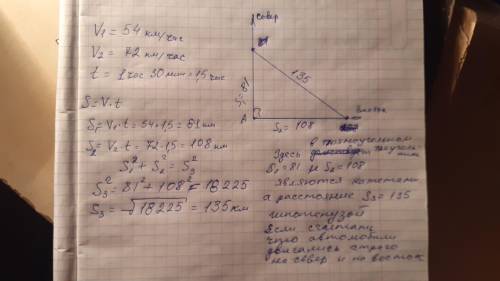 V1 = 54 км/час
V2 = 72 км/час
t = 1 час 30 мин = 1,5 час
S = V·t
S1 = V1·t = 54·1,5 = 81 км
S2 = V2·t = 72·1,5 = 108 км
S1² + S2² = S3²
S3² = 81² + 108² = 18225
S3 = √18225 = 135 км
север
S1 = 81
135
A
S2 = 108
восток
в прямоугольном
Здесь треугольнике
S1 = 81 и S2 = 108
являются катетами
а расстояние S3 = 135
гипотенузой
Если считать
что автомобили
двигались строго
на север и на восток